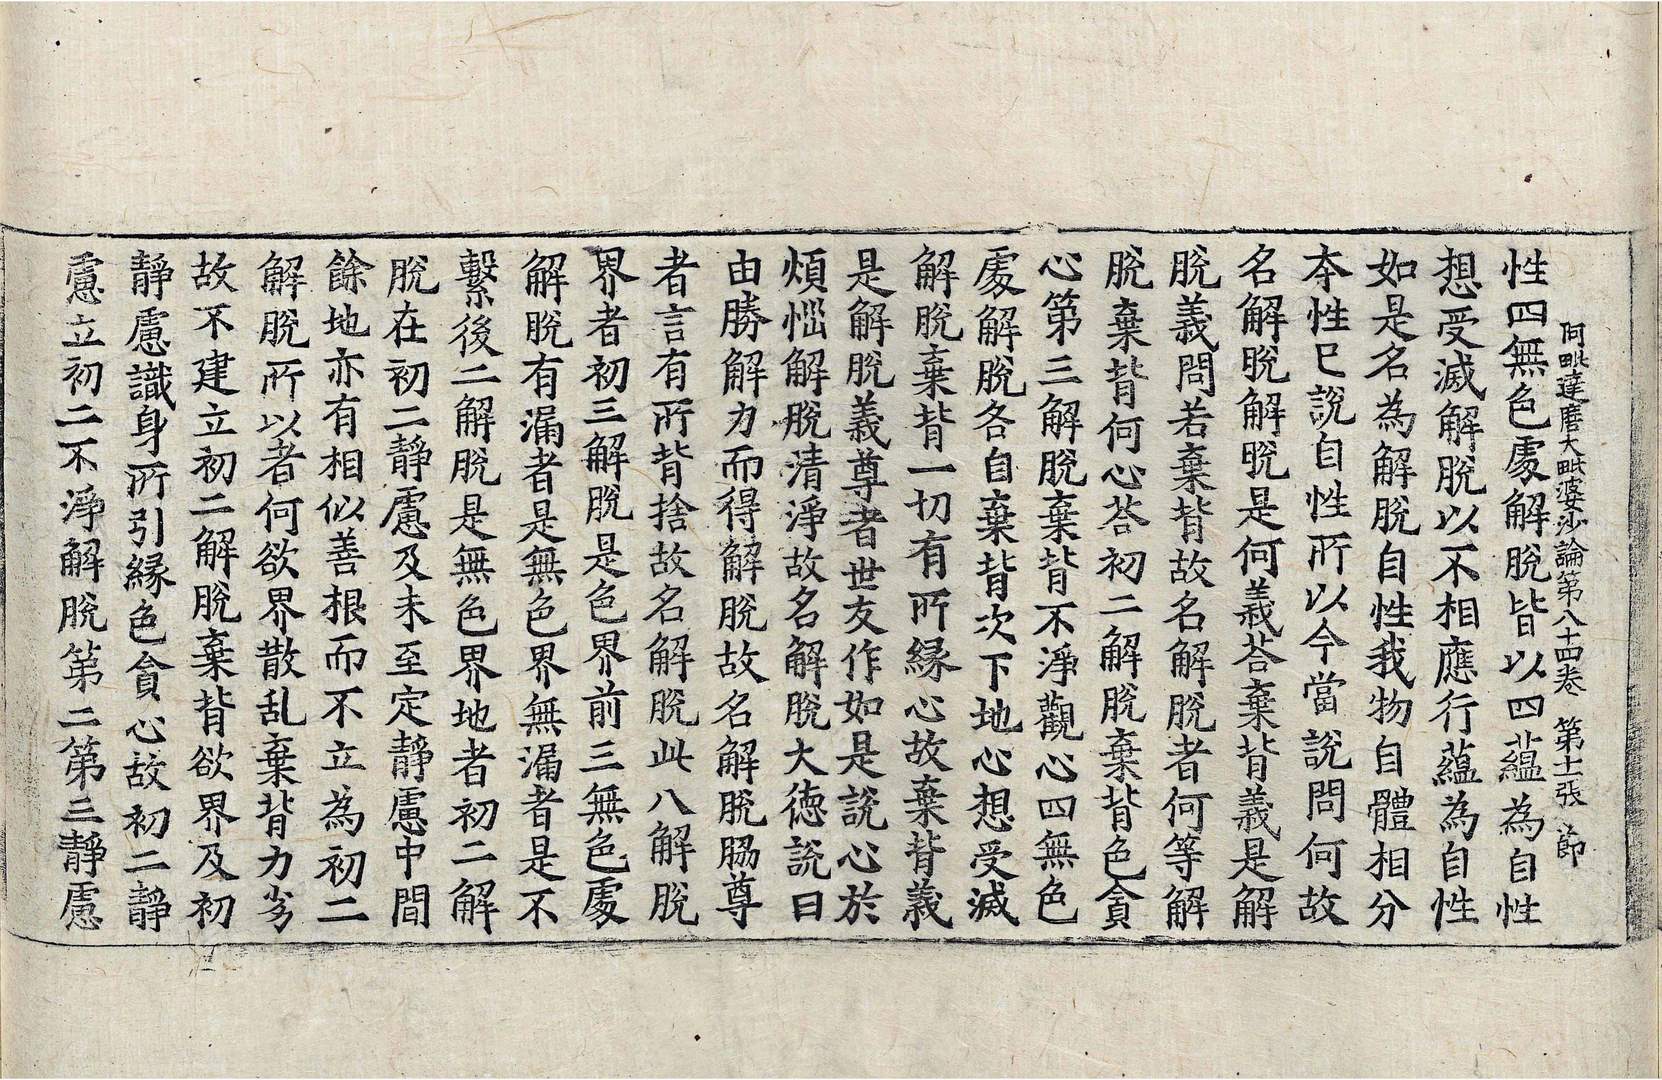 阿毗達磨大毗婆沙論第八十四卷 第十二張 節
性四無色處解脫皆以四蘊為自性
想受滅解脫以不相應行蘊為自性
如是名為解脫自性我物自體相分
夲性已說自性所以今當說問何故
名解脫解脫是何義荅棄背義是解
脫義問若棄背故名解脫者何等解
脫棄背何心荅初二解脫棄背色貪
心第三解脫棄背不淨觀心四無色
處解脫各自棄背次下地心想受滅
解脫棄背一切有所緣心故棄背義
是解脫義尊者世友作如是說心於
煩惱解脫清淨故名解脫大德說曰
由勝解力而得解脫故名解脫脇尊
者言有所背捨故名解脫此八解脫
界者初三解脫是色界前三無色處
解脫有漏者是無色界無漏者是不
繫後二解脫是無色界地者初二解
脫在初二靜慮及未至定靜慮中間
餘地亦有相似善根而不立為初二
解脫所以者何欲界散乱棄背力劣
故不建立初二解脫棄背欲界及初
靜慮識身所引緣色貪心故初二靜
慮立初二不淨解脫第二第三靜慮